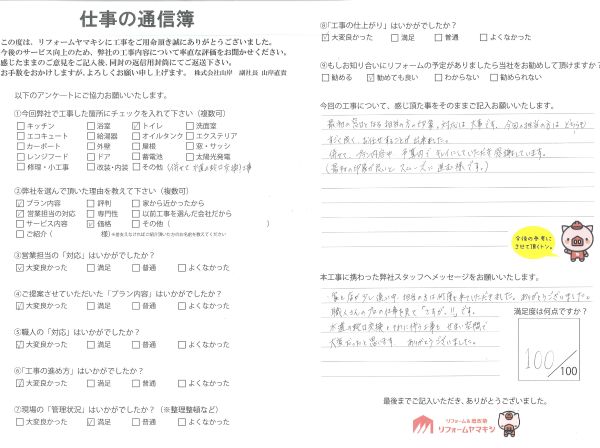 仕事の通信簿
この度は、リフォームヤマキシに工事をご用命頂き誠にありがとうございました。
今後のサービス向上のため、弊社の工事内容について率直な評価をお聞かせください。
感じたままのご意見をご記入後、同封の返信用封筒にてご返送下さい。
お手数をおかけしますが、よろしくお願い申し上げます。 株式会社山岸 副社長 山岸直貴
以下のアンケートにご協力おねがいいたします。
①今回弊社で工事した箇所にチェックを入れて下さい（複数可）
□キッチン □浴室 ☑トイレ □洗面室
□エコキュート □給湯器 □オイルタンク □エクステリア
□カーポート □外壁 □屋根 □窓・サッシ
□レンジフード □ドア □蓄電池 □太陽光発電
□修理・小工事 □改装・内装 □その他
②弊社を選んで頂いた理由を教えて下さい（複数可）
☑プラン内容 □評判 □家から近かったから
☑営業担当の対応 □専門性 □以前工事を選んだ会社だから
□サービス内容 ☑価格 □その他（ ）
□ご紹介（ 様）※差支えなければご紹介頂いた方のお名前を教えてください
③営業担当の「対応」はいかがでしたか？
☑大変良かった □満足 □普通 □よくなかった
④ご提案させていただいた「プラン内容」はいかがでしたか？
☑大変良かった □満足 □普通 □よくなかった
⑤職人の「対応」はいかがでしたか？
☑大変良かった □満足 □普通 □よくなかった
⑥「工事の進め方」はいかがでしたか？
☑大変良かった □満足 □普通 □よくなかった
⑦現場の「管理状況」はいかがでしたか？（※整理整頓など）
□大変良かった ☑満足 □普通 □よくなかった
⑧「工事の仕上がり」はいかがでしたか？
☑大変良かった □満足 □普通 □よくなかった
⑨もしお知り合いにリフォームの予定がありましたら当社をお勧めして頂けますか？
□勧める ☑勧めても良い □わからない □勧められない
今回の工事について、感じ頂た事をそのままご記入お願いいたします。
すごく良く、お任せすることが出来ました。
今後の参考に
させて頂くトン。
本工事に携わった弊社スタッフへメッセージをお願いいたします。
職人さんのプロの仕事を見て「さすが！！」です。
大変だったと思います。 ありがとうございました。
満足度は何点ですか？
100/100
最後までご記入いただき、ありがとうございました。
リフォーム＆増改築
リフォームヤマキシ